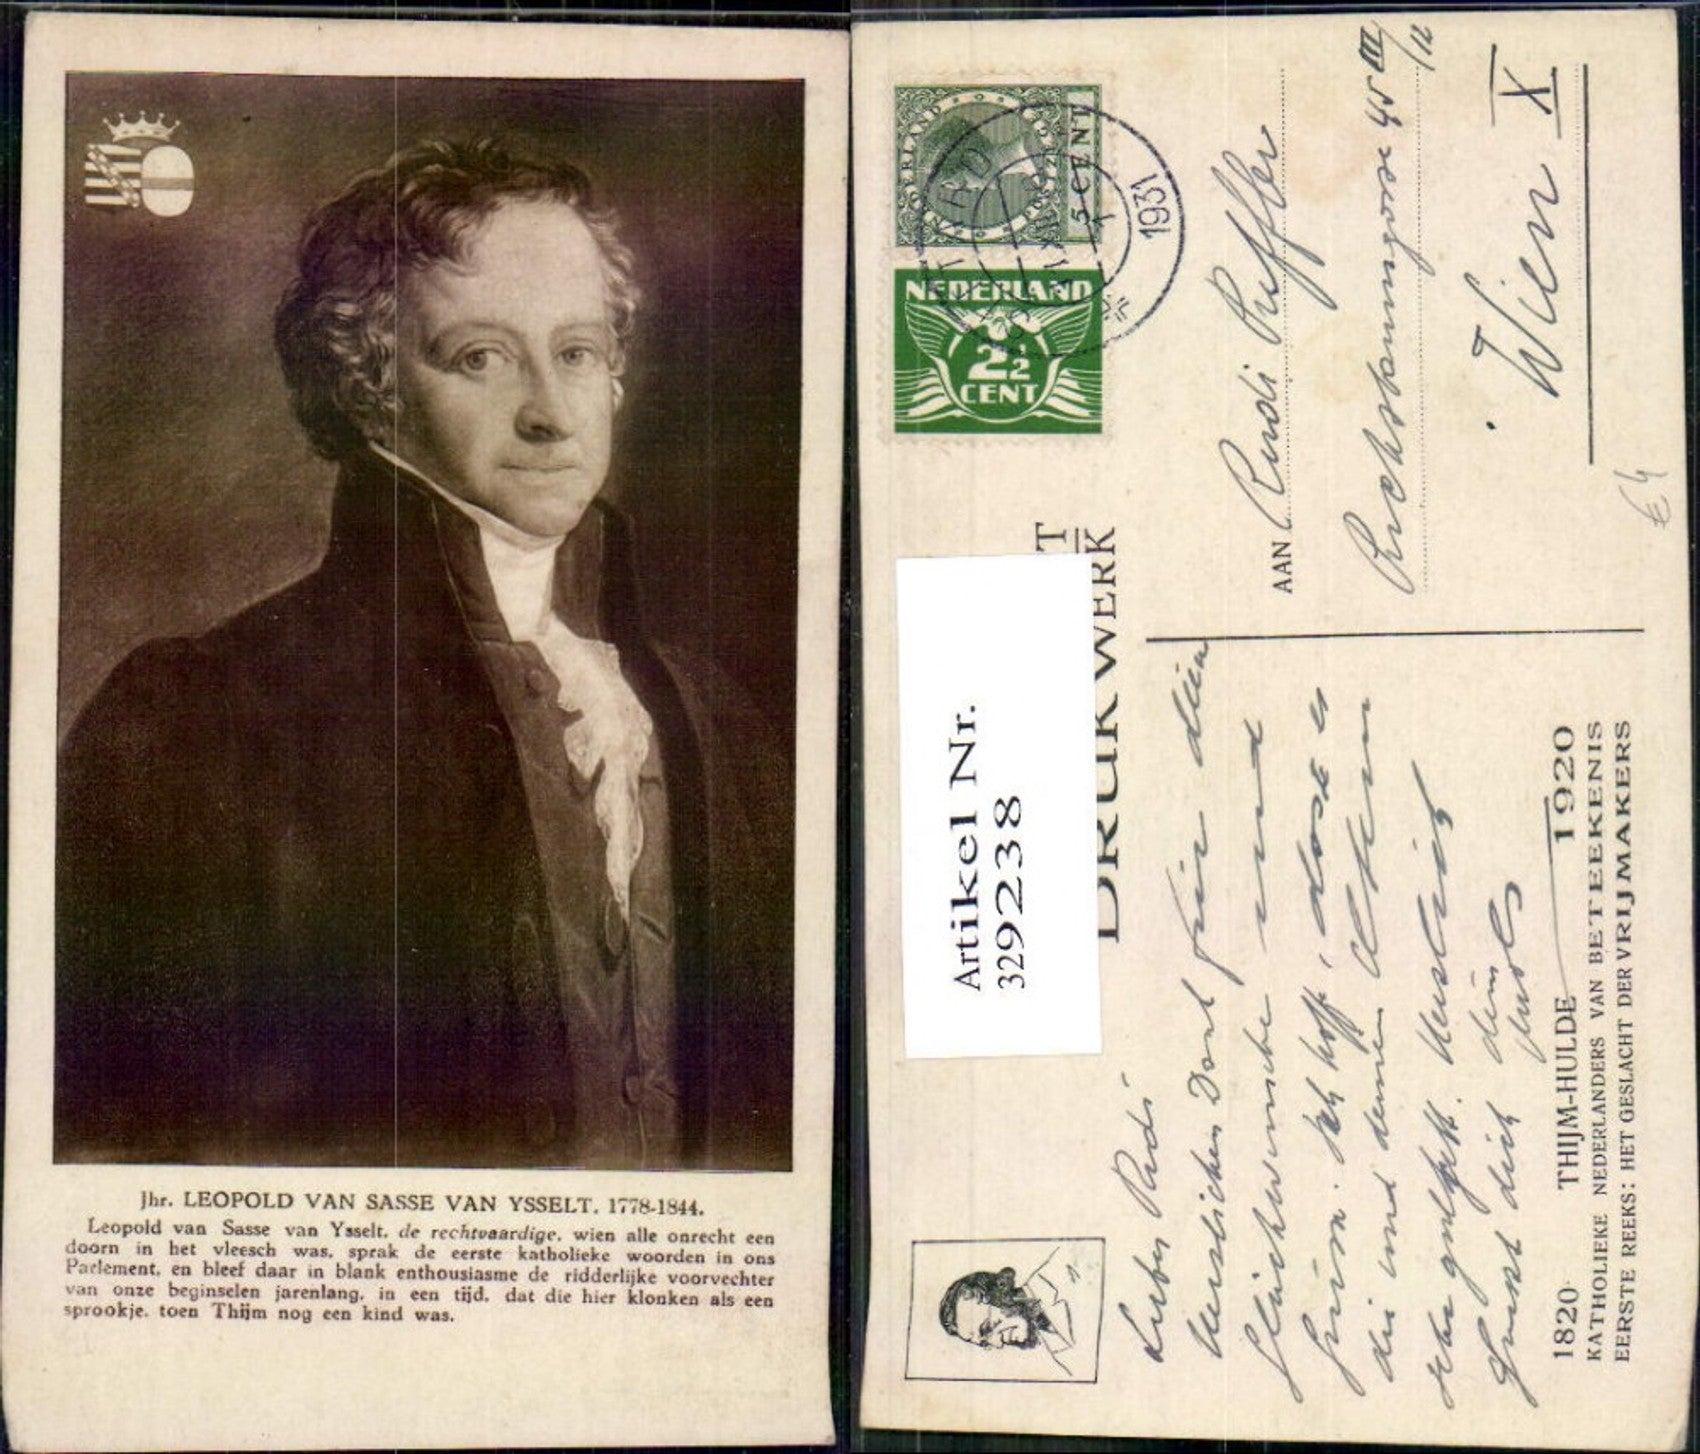 Jhr. LEOPOLD VAN SASSE VAN YSSELT. 1778-1844.
Leopold van Sasse van Ysselt, de rechtvaardige, wien alle onrecht een
doorn in het vleesch was, sprak de eerste katholieke woorden in ons
Parlement, en bleef daar in blank enthousiasme de ridderlijke voorvechter
van onze beginselen jarenlang, in een tijd, dat die hier klonken als een
sprookje, toen Thijm nog een kind was.
NEDERLAND
5 CENT
1931
NEDERLAND
2½
CENT
T
DRUKWERK
Artikel Nr.
329238
AAN Rudi
45 III/12
Wien X
€4
Lieber Rudi
Herzlichen Dank für deine
Glückwünsche und
Ich hoffe, dass es
dir und deinen Eltern
sehr gut geht. Herzlich
grüsst dich dein
1820 THIJM-HULDE 1920
KATHOLIEKE NEDERLANDERS VAN BETEEKENIS
EERSTE REEKS: HET GESLACHT DER VRIJMAKERS